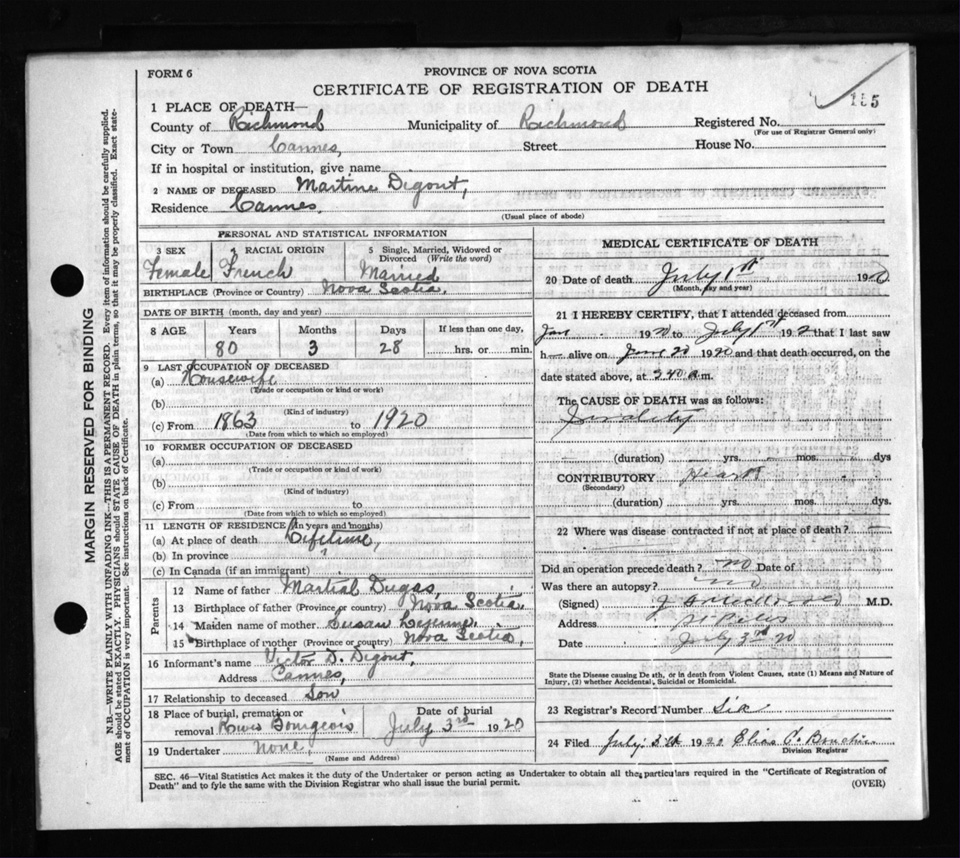 FORM 6
PROVINCE OF NOVA SCOTIA
CERTIFICATE OF REGISTRATION OF DEATH
185
1 PLACE OF DEATH—
County of Richmond Municipality of Richmond Registered No.
(For use of Registrar General only)
City or Town Cannes, Street House No.
If in hospital or institution, give name
2 NAME OF DECEASED Martine Digout,
Residence Cannes.
(Usual place of abode)
PERSONAL AND STATISTICAL INFORMATION
3 SEX 4 RACIAL ORIGIN 5 Single, Married, Widowed or Divorced (Write the word)
Female French Married
BIRTHPLACE (Province or Country) Nova Scotia.
DATE OF BIRTH (month, day and year)
8 AGE Years Months Days If less than one day,
80 3 28 hrs. or min.
9 LAST OCCUPATION OF DECEASED
(a) Housewife
(Trade or occupation or kind or work)
(b)
(Kind of industry)
(c) From 1863 to 1920
(Date from which to which so employed)
10 FORMER OCCUPATION OF DECEASED
(a)
(Trade or occupation or kind of work)
(b)
(Kind of industry)
(c) From to
(Date from which to which so employed)
11 LENGTH OF RESIDENCE (in years and months)
(a) At place of death Lifetime,
(b) In province
(c) In Canada (if an immigrant)
Parents
12 Name of father Martial Dugas,
13 Birthplace of father (Province or country) Nova Scotia,
14 Maiden name of mother Susan Lejeune,
15 Birthplace of mother (Province or country) Nova Scotia,
16 Informant's name Victor D. Digout,
Address Cannes,
17 Relationship to deceased Son
18 Place of burial, cremation or removal River Bourgeois Date of burial July 3rd 1920
19 Undertaker None,
(Name and Address)
MEDICAL CERTIFICATE OF DEATH
20 Date of death July 1st 1920
(Month, day and year)
21 I HEREBY CERTIFY, that I attended deceased from
Jan 1920 to July 1st 192 that I last saw
h alive on June 20 1920 and that death occurred, on the
date stated above, at 2 40 a m.
The CAUSE OF DEATH was as follows:
(duration) yrs. mos. dys
CONTRIBUTORY Heart
(Secondary)
(duration) yrs. mos. dys.
22 Where was disease contracted if not at place of death?
Did an operation precede death? no Date of
Was there an autopsy? no
(Signed) M.D.
Address St Peters
Date July 3rd 20
State the Disease causing Death, or in death from Violent Causes, state (1) Means and Nature of
Injury, (2) whether Accidental, Suicidal or Homicidal.
23 Registrar's Record Number Six
24 Filed July 3rd 1920 Elias C.
Division Registrar
SEC. 46—Vital Statistics Act makes it the duty of the Undertaker or person acting as Undertaker to obtain all the particulars required in the "Certificate of Registration of
Death" and to fyle the same with the Division Registrar who shall issue the burial permit.
(OVER)
MARGIN RESERVED FOR BINDING
N.B.—WRITE PLAINLY WITH UNFADING INK—THIS IS A PERMANENT RECORD. Every item of information should be carefully supplied.
AGE should be stated EXACTLY. PHYSICIANS should STATE CAUSE OF DEATH in plain terms, so that it may be properly classified. Exact state-
ment of OCCUPATION is very important. See instructions on back of Certificate.